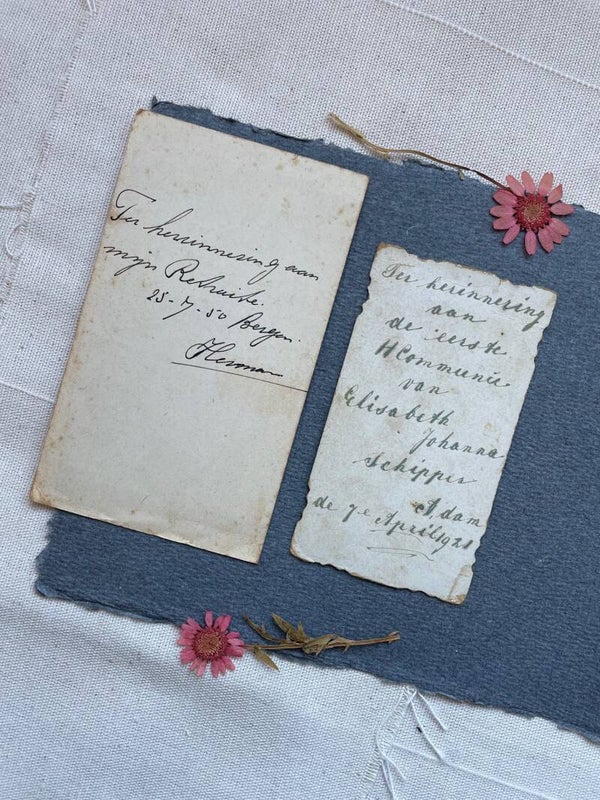 Ter herinnering aan
mijn Retraite.
25-7-50 Bergen.
Herman
Ter herinnering
aan
de eerste
H Communie
van
Elisabeth
Johanna
Schipper
A'dam
de 7e April 1921